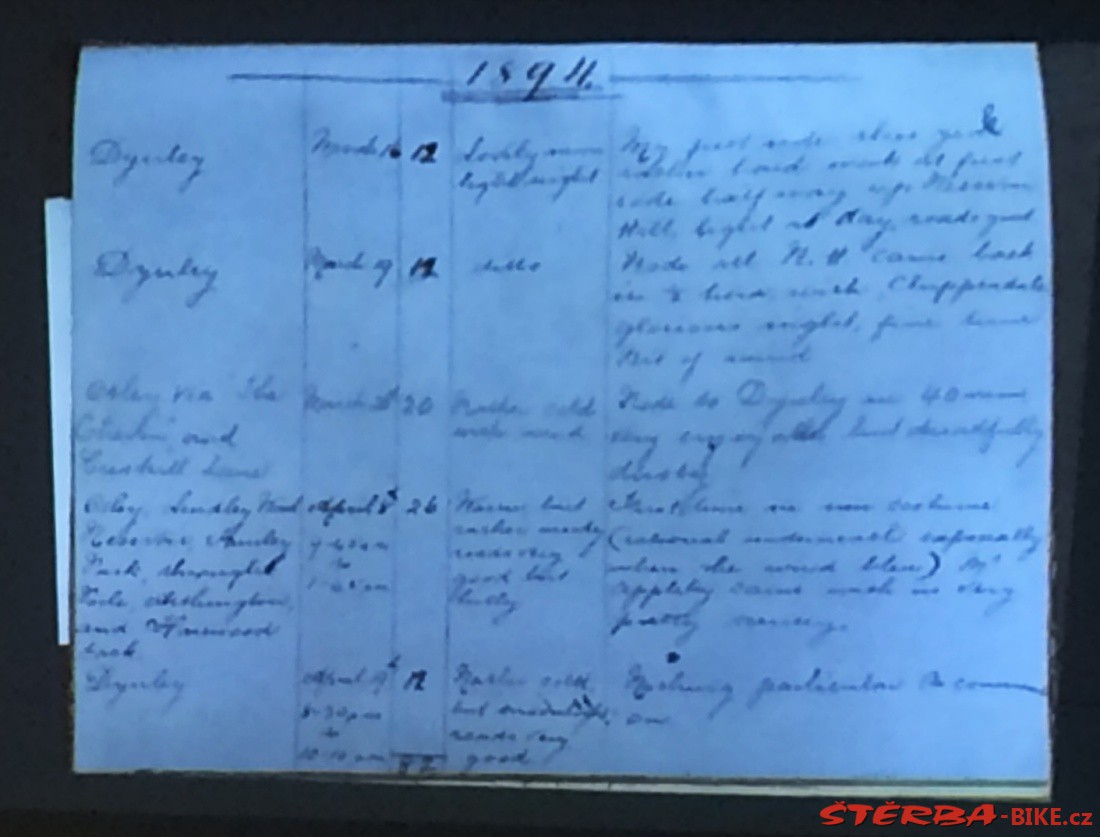 1894.
Dyneley
March 16
12
Lovely moon
light night
My first ride this year
rather hard work at first
rode half way up
Hill, light as day, roads good
Dyneley
March 19
12
ditto
Rode all N. H came back
in ½ hour, with Chippendale
glorious night, fine time
bit of wind
Otley via the
and
Creskill Lane
March
20
Rather cold
with wind
Rode to Dyneley in 40 mins
very enjoyable but dreadfully
dusty
Otley, Lindley Wood
Reservoir, Farnley
Park, through
Poole, Arthington,
and Harewood
Park
April 8
to
26
Warm but
rather windy
roads very
good but
First time in new costume
(rational underneath especially
when the wind blew) Mr
Appleby came with us very
pretty scenery.
Dyneley
April 19
8-30 pm
to
10-10 pm
12
Rather cold
but
roads very
good
Nothing particular to comment
on
82
ŠTĚRBA-BIKE.cz